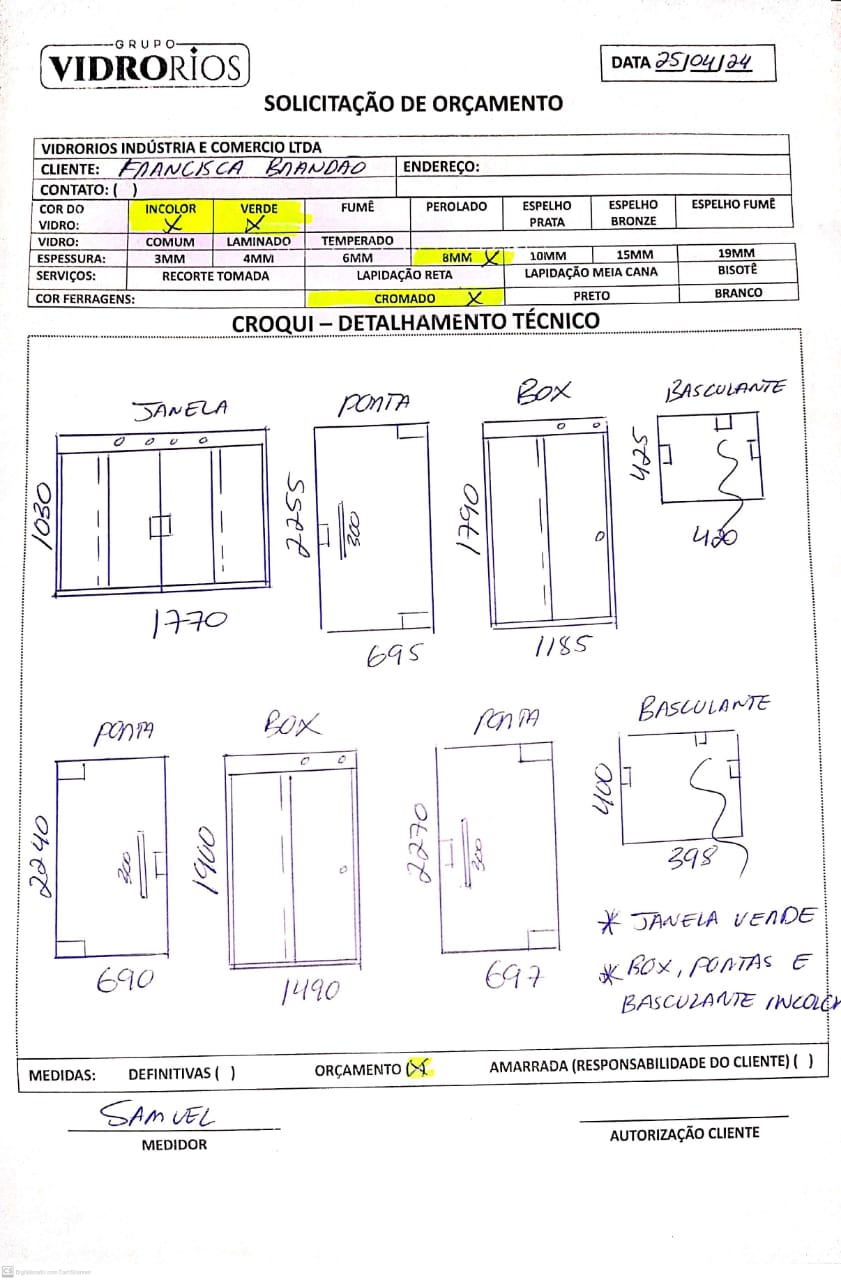 GRUPO
VIDRORIOS
DATA 25/04/24
SOLICITAÇÃO DE ORÇAMENTO
VIDRORIOS INDÚSTRIA E COMERCIO LTDA
CLIENTE: FRANCISCA BRANDAO ENDEREÇO:
CONTATO: ( )
COR DO VIDRO: INCOLOR X VERDE X FUMÊ PEROLADO ESPELHO PRATA ESPELHO BRONZE ESPELHO FUMÊ
VIDRO: COMUM LAMINADO TEMPERADO
ESPESSURA: 3MM 4MM 6MM 8MM X 10MM 15MM 19MM
SERVIÇOS: RECORTE TOMADA LAPIDAÇÃO RETA LAPIDAÇÃO MEIA CANA BISOTÊ
COR FERRAGENS: CROMADO X PRETO BRANCO
CROQUI – DETALHAMENTO TÉCNICO
JANELA PORTA BOX BASCULANTE
1030 2255 300 1790 425
420
1770 695 1185
PORTA BOX PORTA BASCULANTE
2240 300 1900 2270 300 400
398
690 1490 697
* JANELA VERDE
* BOX, PORTAS E
BASCULANTE INCOLOR
MEDIDAS: DEFINITIVAS ( ) ORÇAMENTO (X) AMARRADA (RESPONSABILIDADE DO CLIENTE) ( )
SAMUEL
MEDIDOR AUTORIZAÇÃO CLIENTE
CS Digitalizado com CamScanner